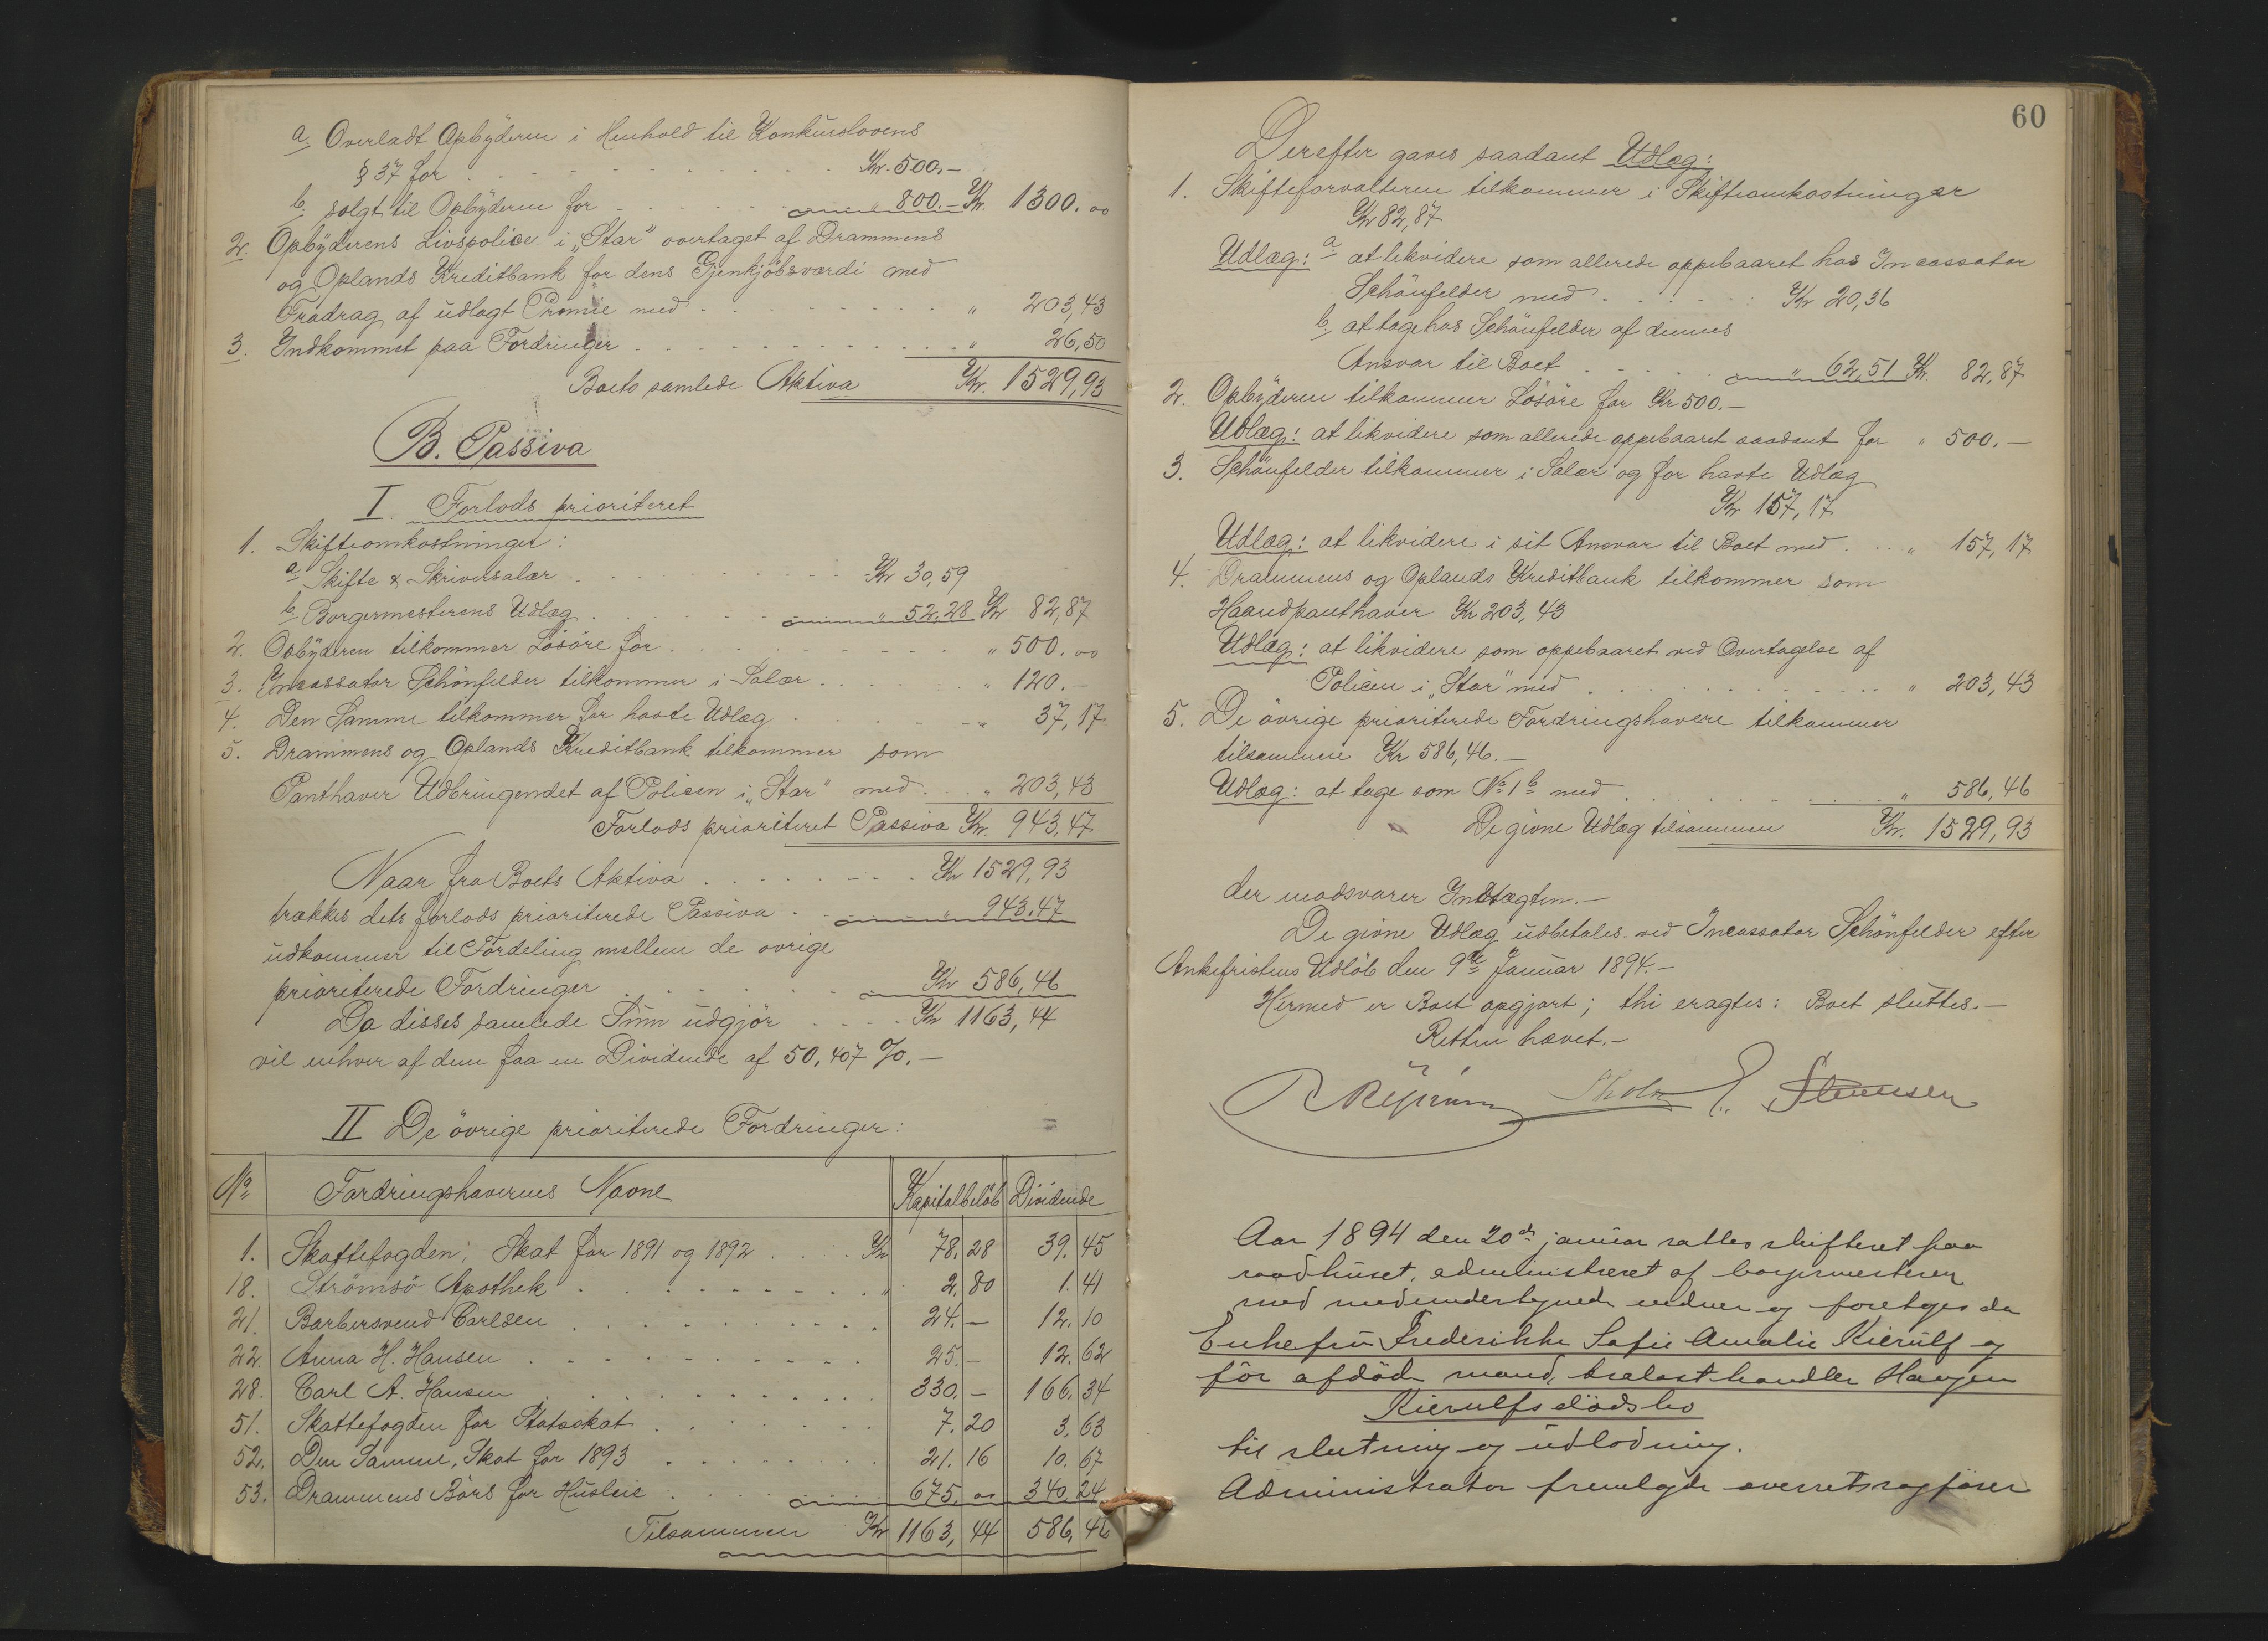 a. Overladt Opbyderen i Henhold til Konkurslovens
§ 37 for . . . . . . Kr. 500.—
b. solgt til Opbyderen for . . . . „ 800.— Kr. 1300. 00
2. Opbyderens Livspolice i „Star" overtaget af Drammens
og Oplands Kreditbank for dens Gjenkjöbsværdi med
Fradrag af udlagt Præmie med . . . . . „ 203,43
3. Indkommet paa Fordringer . . . . . „ 26,50
Boets samlede Aktiva Kr. 1529,93
B. Passiva
I. Forlods prioriteret
1. Skifteomkostninger:
a. Skifte & Skriversalær . . . . . Kr 30,59
b. Borgermesterens Udlæg . . . . „ 52,28 Kr 82,87
2. Opbyderen tilkommer Lösöre for . . . . . „ 500. 00
3. Incassator Schönfelder tilkommer i Salær . . . . „ 120.—
4. Den Samme tilkommer for havte Udlæg . . . . „ 37,17
5. Drammens og Oplands Kreditbank tilkommer som
Panthaver Udbringendet af Policen i „Star" med . . „ 203,43
Forlods prioriteret Passiva Kr. 943,47
Naar fra Boets Aktiva . . . . . Kr 1529,93
trækkes dets forlods prioriterede Passiva . „ 943.47
udkommer til Fordeling mellem de övrige
prioriterede Fordringer . . . . . Kr 586,46
Da disses samlede Sum udgjör . . . . Kr 1163,44
vil enhver af dem faa en Dividende af 50,407 %.—
II De övrige prioriterede Fordringer:
No. Fordringshavernes Navne Kapitalbelöb Dividende
1. Skattefogden; Skat for 1891 og 1892 . . . . Kr 78. 28 39. 45
18. Strömsö Apothek . . . . . „ 2. 80 1. 41
21. Barbersvend Carlsen . . . . . 24. — 12. 10
22. Anna H. Hansen . . . . . 25. — 12. 62
28. Carl A. Hansen . . . . . 330. — 166. 34
51. Skattefogden for Statsskat . . . . . 7. 20 3. 63
52. Den Samme, Skat for 1893 . . . . . 21. 16 10. 67
53. Drammens Börs for Husleie . . . . 675. 00 340. 24
Tilsammen Kr 1163, 44 586, 46
60
Derefter gaves saadant Udlæg:
1. Skifteforvalteren tilkommer i Skifteomkostninger
Kr 82,87
Udlæg: a. at likvidere som allerede oppebaaret hos Incassator
Schönfelder med . . . . . Kr 20,36
b. at tage hos Schönfelder af dennes
Ansvar til Boet . . . . . „ 62,51 Kr. 82,87
2. Opbyderen tilkommer Lösöre for Kr 500.—
Udlæg: at likvidere som allerede oppebaaret saadant for „ 500.—
3. Schönfelder tilkommer i Salær og for havte Udlæg
Kr 157,17
Udlæg: at likvidere i sit Ansvar til Boet med . . . „ 157,17
4. Drammens og Oplands Kreditbank tilkommer som
Haandpanthaver Kr 203,43
Udlæg: at likvidere som oppebaaret ved Overtagelse af
Policen i „Star" med . . . . . „ 203,43
5. De övrige prioriterede Fordringshavere tilkommer
tilsammen Kr 586,46.—
Udlæg: at tage som No 1 b med . . . . . „ 586,46
De givne Udlæg tilsammen Kr. 1529,93
der modsvarer Indtægten.—
De givne Udlæg udbetales ved Incassator Schönfelder efter
Ankefristens Udlöb den 9de Januar 1894.—
Hermed er Boet opgjort; thi eragtes: Boet sluttes.—
Retten hævet.—
Aar 1894 den 20de januar sattes skifteret paa
raadhuset, administreret af borgermesteren
med medundertegnede vidner og foretoges da
Enkefru Frederikke Sofie Amalie Kierulf og
för afdöde mand, trælasthandler Haagen
Kierulfs dödsbo
til slutning og udlodning.
Administrator fremlagde overretssagförer